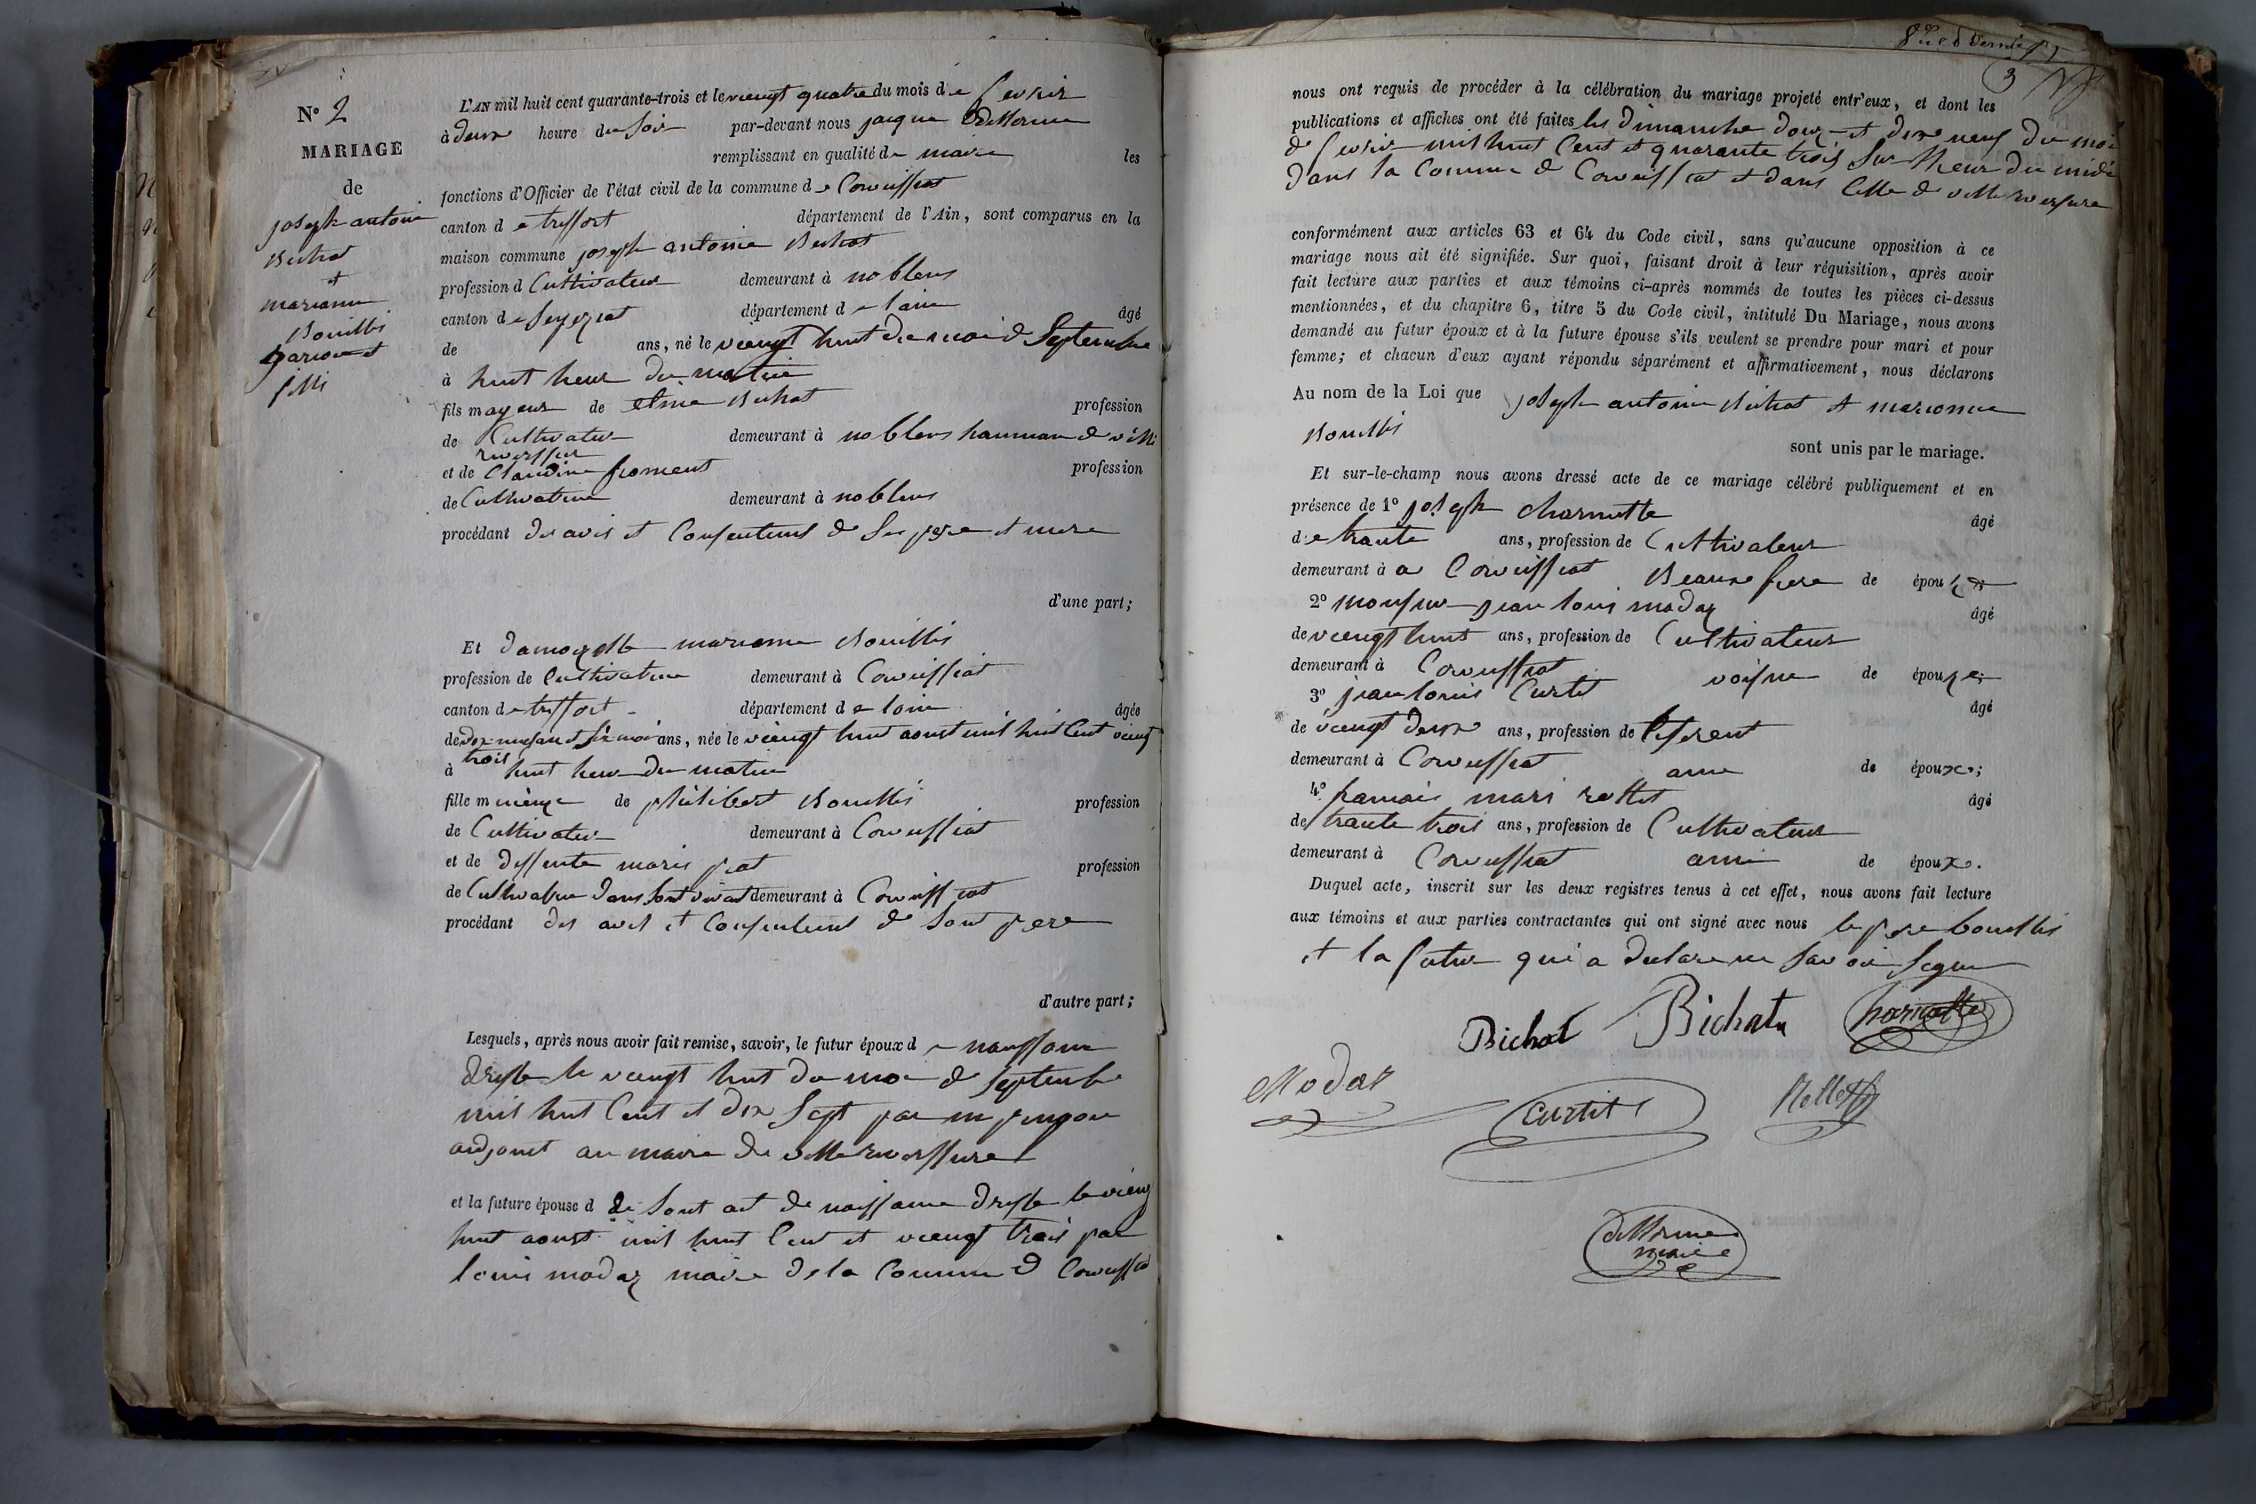 N° 2
MARIAGE
de
joseph antoine
Bichat
et
marianne
Bouillis
garson et
fille
L'AN mil huit cent quarante-trois et le vieengt quatre du mois de fevrier
à deux heure du Soir par-devant nous jacque dellorme
remplissant en qualité de maire les
fonctions d'Officier de l'état civil de la commune de Corveissiat
canton de treffort département de l'Ain, sont comparus en la
maison commune joseph antoine Bichat
profession d Cultivateur demeurant à noblens
canton de Seyzeriat département de lain âgé
de ans, né le vieengt huit du moi d Septembre
à huit heur du matin
fils mageur de Bichat profession
de Cultivateur demeurant à noblens hammau de ville
reverssur
et de Claudine froment profession
de Cultivatrice demeurant à noblens
procédant du avis et Consentement de Ses pere et mere
d'une part;
Et damoizelle marianne Bouillis
profession de Cultivatrice demeurant à Corveissiat
canton de treffort département de lain âgée
de dix neuf an et six moi ans, née le vieengt huit aoust mil huit Cent vieengt
trois
à huit heur du matin
fille m mineure de philibert Bouillis profession
de Cultivateur demeurant à Corveissiat
et de deffunte marie piat profession
de Cultivatrice dans Sont vivant demeurant à Corveissiat
procédant des avis et Consentement de Sont pere
d'autre part;
Lesquels, après nous avoir fait remise, savoir, le futur époux d e naissance
dressé le vieengt huit du moi de Septembre
mil huit Cent et dix Sept par m
adjoint au maire de villereverssure
et la future épouse d de Sont act de naissance dressé le vieengt
huit aoust mil huit Cent et vieengt trois par
louis modaz maire de la Commune d Corveissiat
3
nous ont requis de procéder à la célébration du mariage projeté entr'eux, et dont les
publications et affiches ont été faites les dimanche douz et dix neuf du moi
de fevrier mil huit Cent et quarante trois Sur lheur du midi
dans la Commune de Corveissiat et dans Celle de villereversure
conformément aux articles 63 et 64 du Code civil, sans qu'aucune opposition à ce
mariage nous ait été signifiée. Sur quoi, faisant droit à leur réquisition, après avoir
fait lecture aux parties et aux témoins ci-après nommés de toutes les pièces ci-dessus
mentionnées, et du chapitre 6, titre 5 du Code civil, intitulé Du Mariage, nous avons
demandé au futur époux et à la future épouse s'ils veulent se prendre pour mari et pour
femme; et chacun d'eux ayant répondu séparément et affirmativement, nous déclarons
Au nom de la Loi que joseph antoine Bichat et marianne
Bouillis
sont unis par le mariage.
Et sur-le-champ nous avons dressé acte de ce mariage célébré publiquement et en
présence de 1° joseph charnotte âgé
de trante ans, profession de Cultivateur
demeurant à a Corveissiat Beaux frere de épou
2° monsieur jean louis modaz âgé
de vieengt huit ans, profession de Cultivateur
demeurant à Corveissiat voisine de épouze;
3° jean louis Curtit âgé
de vieengt deux ans, profession de
demeurant à Corveissiat ami de époux;
4° francois mari rollet âgé
de trante trois ans, profession de Cultivateur
demeurant à Corveissiat ami de époux.
Duquel acte, inscrit sur les deux registres tenus à cet effet, nous avons fait lecture
aux témoins et aux parties contractantes qui ont signé avec nous le pere bouillis
et la futur qui a declare ne Savoir Signe
Bichat Bichat charnotte
Modaz Curtit Rollet
dellorme
maire